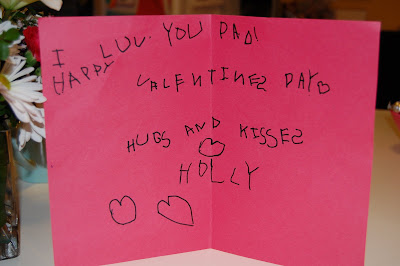 I LUV. YOU DAD!
HAPPY
VALENTINES DAY
HUGS AND KISSES
HOLLY